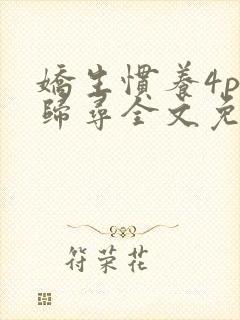 嬌生慣養4p
歸尋全文免
符荣花